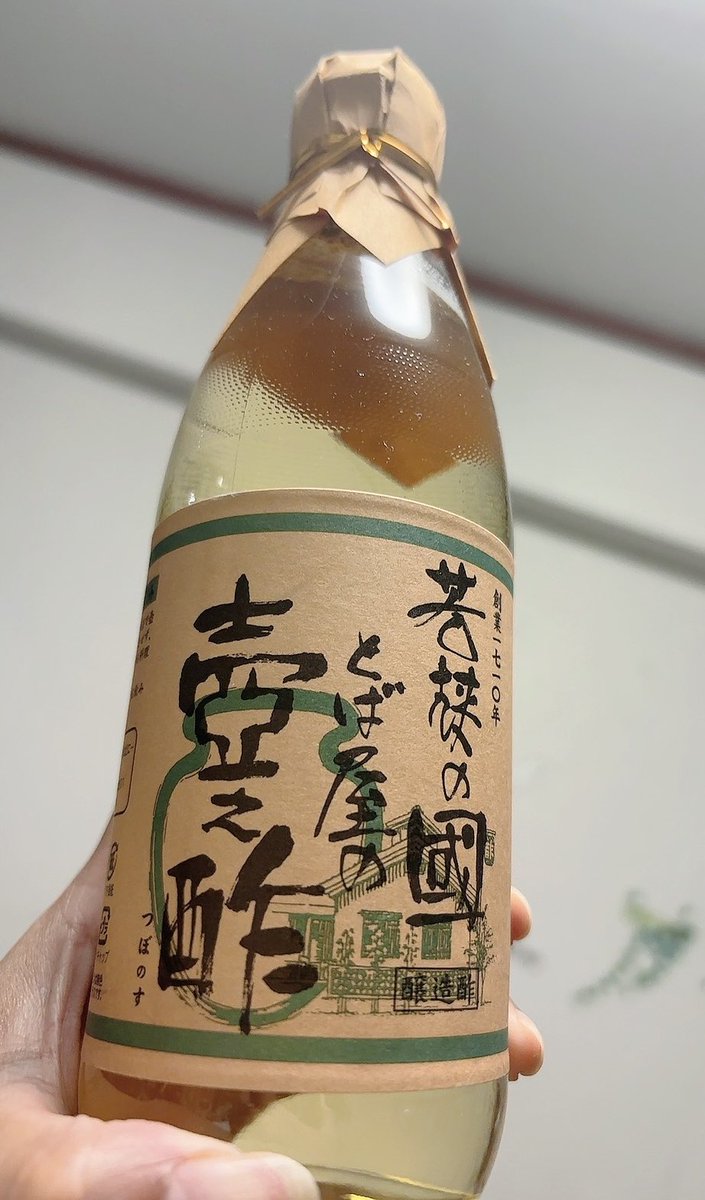 創業一七一〇年
若狭の國
とば屋の
壺之酢
つぼのす
醸造酢